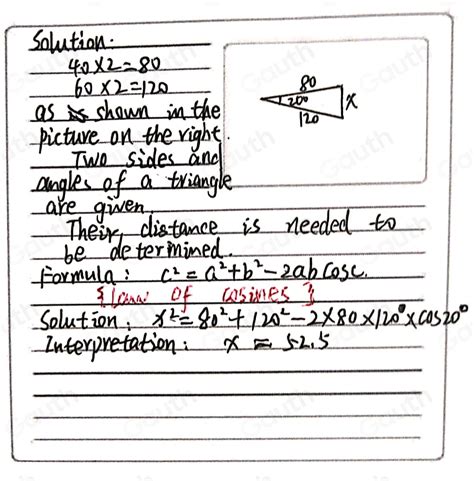 Solution:
40×2=80
60×2=120
as is shown in the
picture on the right.
Two sides and
angles of a triangle
are given
Their distance is needed to
be determined.
Formula: c²=a²+b²-2ab cosc.
{law of cosines}
Solution: x²=80²+120²-2×80×120°×cos20°
Interpretation: x ≈ 52.5
80
20°
x
120